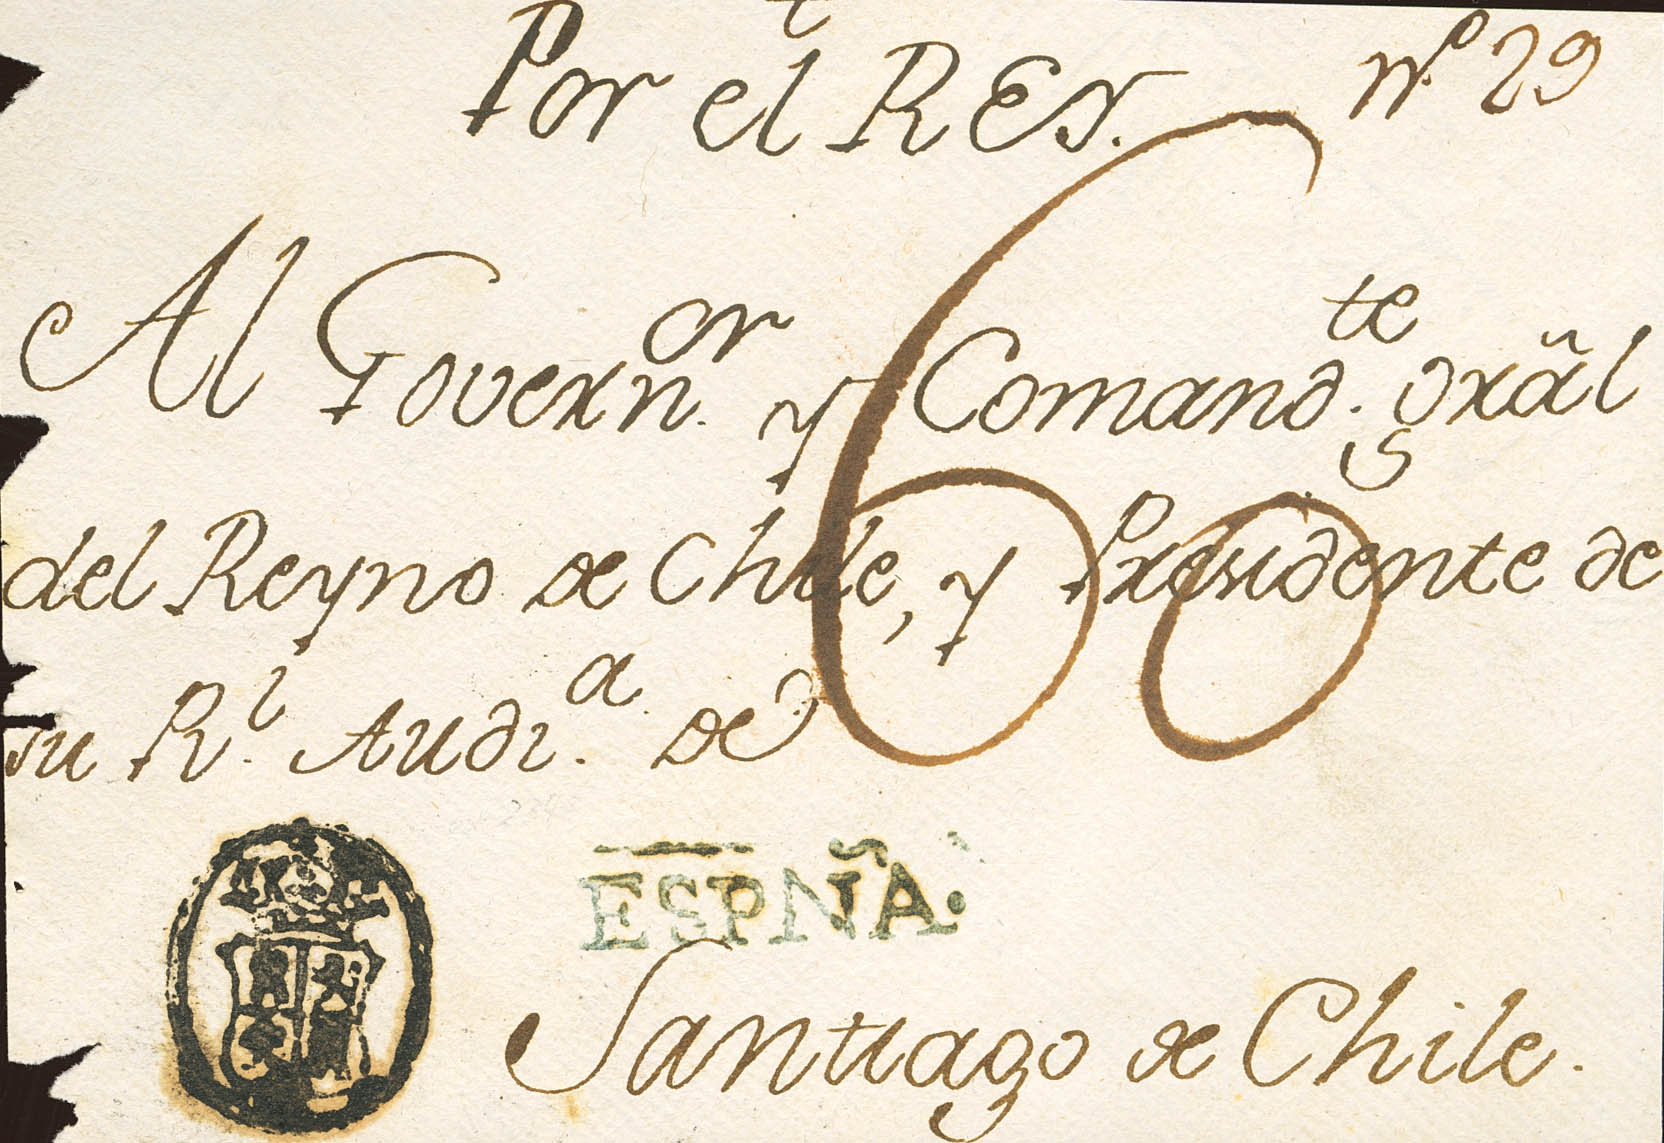 Por el REy. nº. 29
Al Governor. y Comandte. grãl
del Reyno de Chile, y Presidente de
su Rl. Audia. de
60
ESPÑA.
Santiago de Chile.